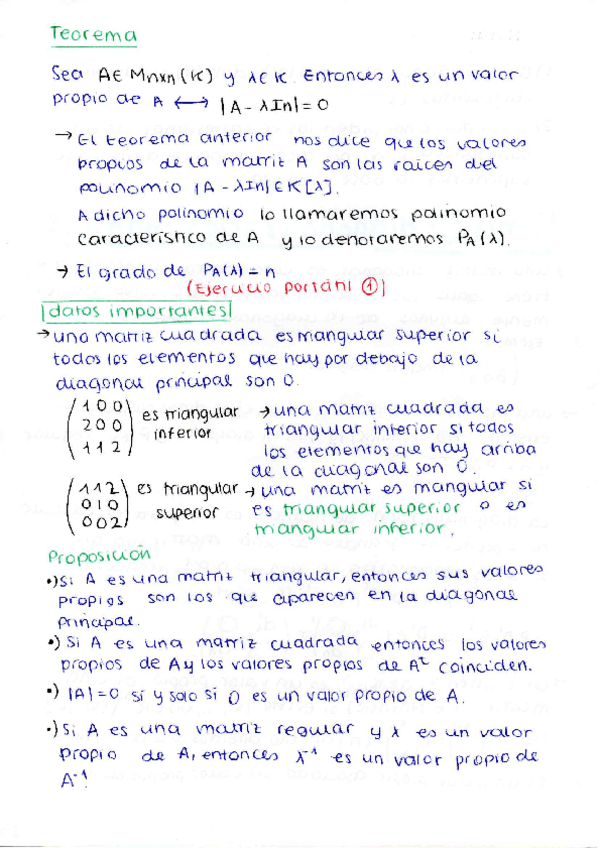 Teorema
Sea A ∈ Mnxn (K) y λ ∈ K. Entonces λ es un valor
propio de A ⟷ |A - λIn| = 0
→ El teorema anterior nos dice que los valores
propios de la matriz A son las raices del
polinomio |A - λIn| ∈ K[λ].
A dicho polinomio lo llamaremos polinomio
caracteristico de A y lo denotaremos PA(λ).
→ El grado de PA(λ) = n
(Ejercicio portátil ①)
datos importantes
→ una matriz cuadrada es triangular superior si
todos los elementos que hay por debajo de la
diagonal principal son 0.
(1 0 0
2 0 0
1 1 2) es triangular inferior
→ una matriz cuadrada es
triangular inferior si todos
los elementos que hay arriba
de la diagonal son 0.
(1 1 2
0 1 0
0 0 2) es triangular superior
→ una matriz es triangular si
es triangular superior o es
triangular inferior.
Proposición
•) Si A es una matriz triangular, entonces sus valores
propios son los que aparecen en la diagonal
principal.
•) Si A es una matriz cuadrada entonces los valores
propios de A y los valores propios de At coinciden.
•) |A| = 0 si y solo si 0 es un valor propio de A.
•) Si A es una matriz regular y λ es un valor
propio de A, entonces λ-1 es un valor propio de
A-1.